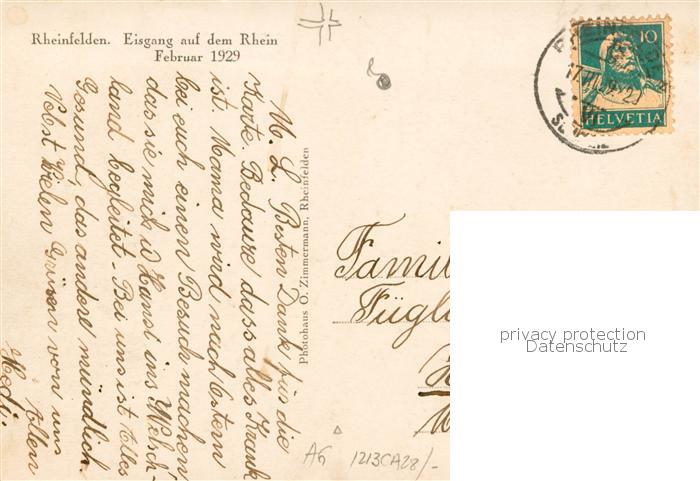 Rheinfelden. Eisgang auf dem Rhein
Februar 1929
M. L. Besten Dank für die
Karte. Bedaure dass alles Krank
ist. Mama wird nach Ostern
bei euch einen Besuch machen
das sie mich u Hansl ins Welsch-
land begleitet. Bei uns ist Alles
Gesund, das andere mündlich.
Nebst vielen Grüssen von uns
Allen
Hedi.
Photohaus O. Zimmermann, Rheinfelden
10
HELVETIA
Famil
Fügl
AG 1213CA28/-
privacy protection
Datenschutz